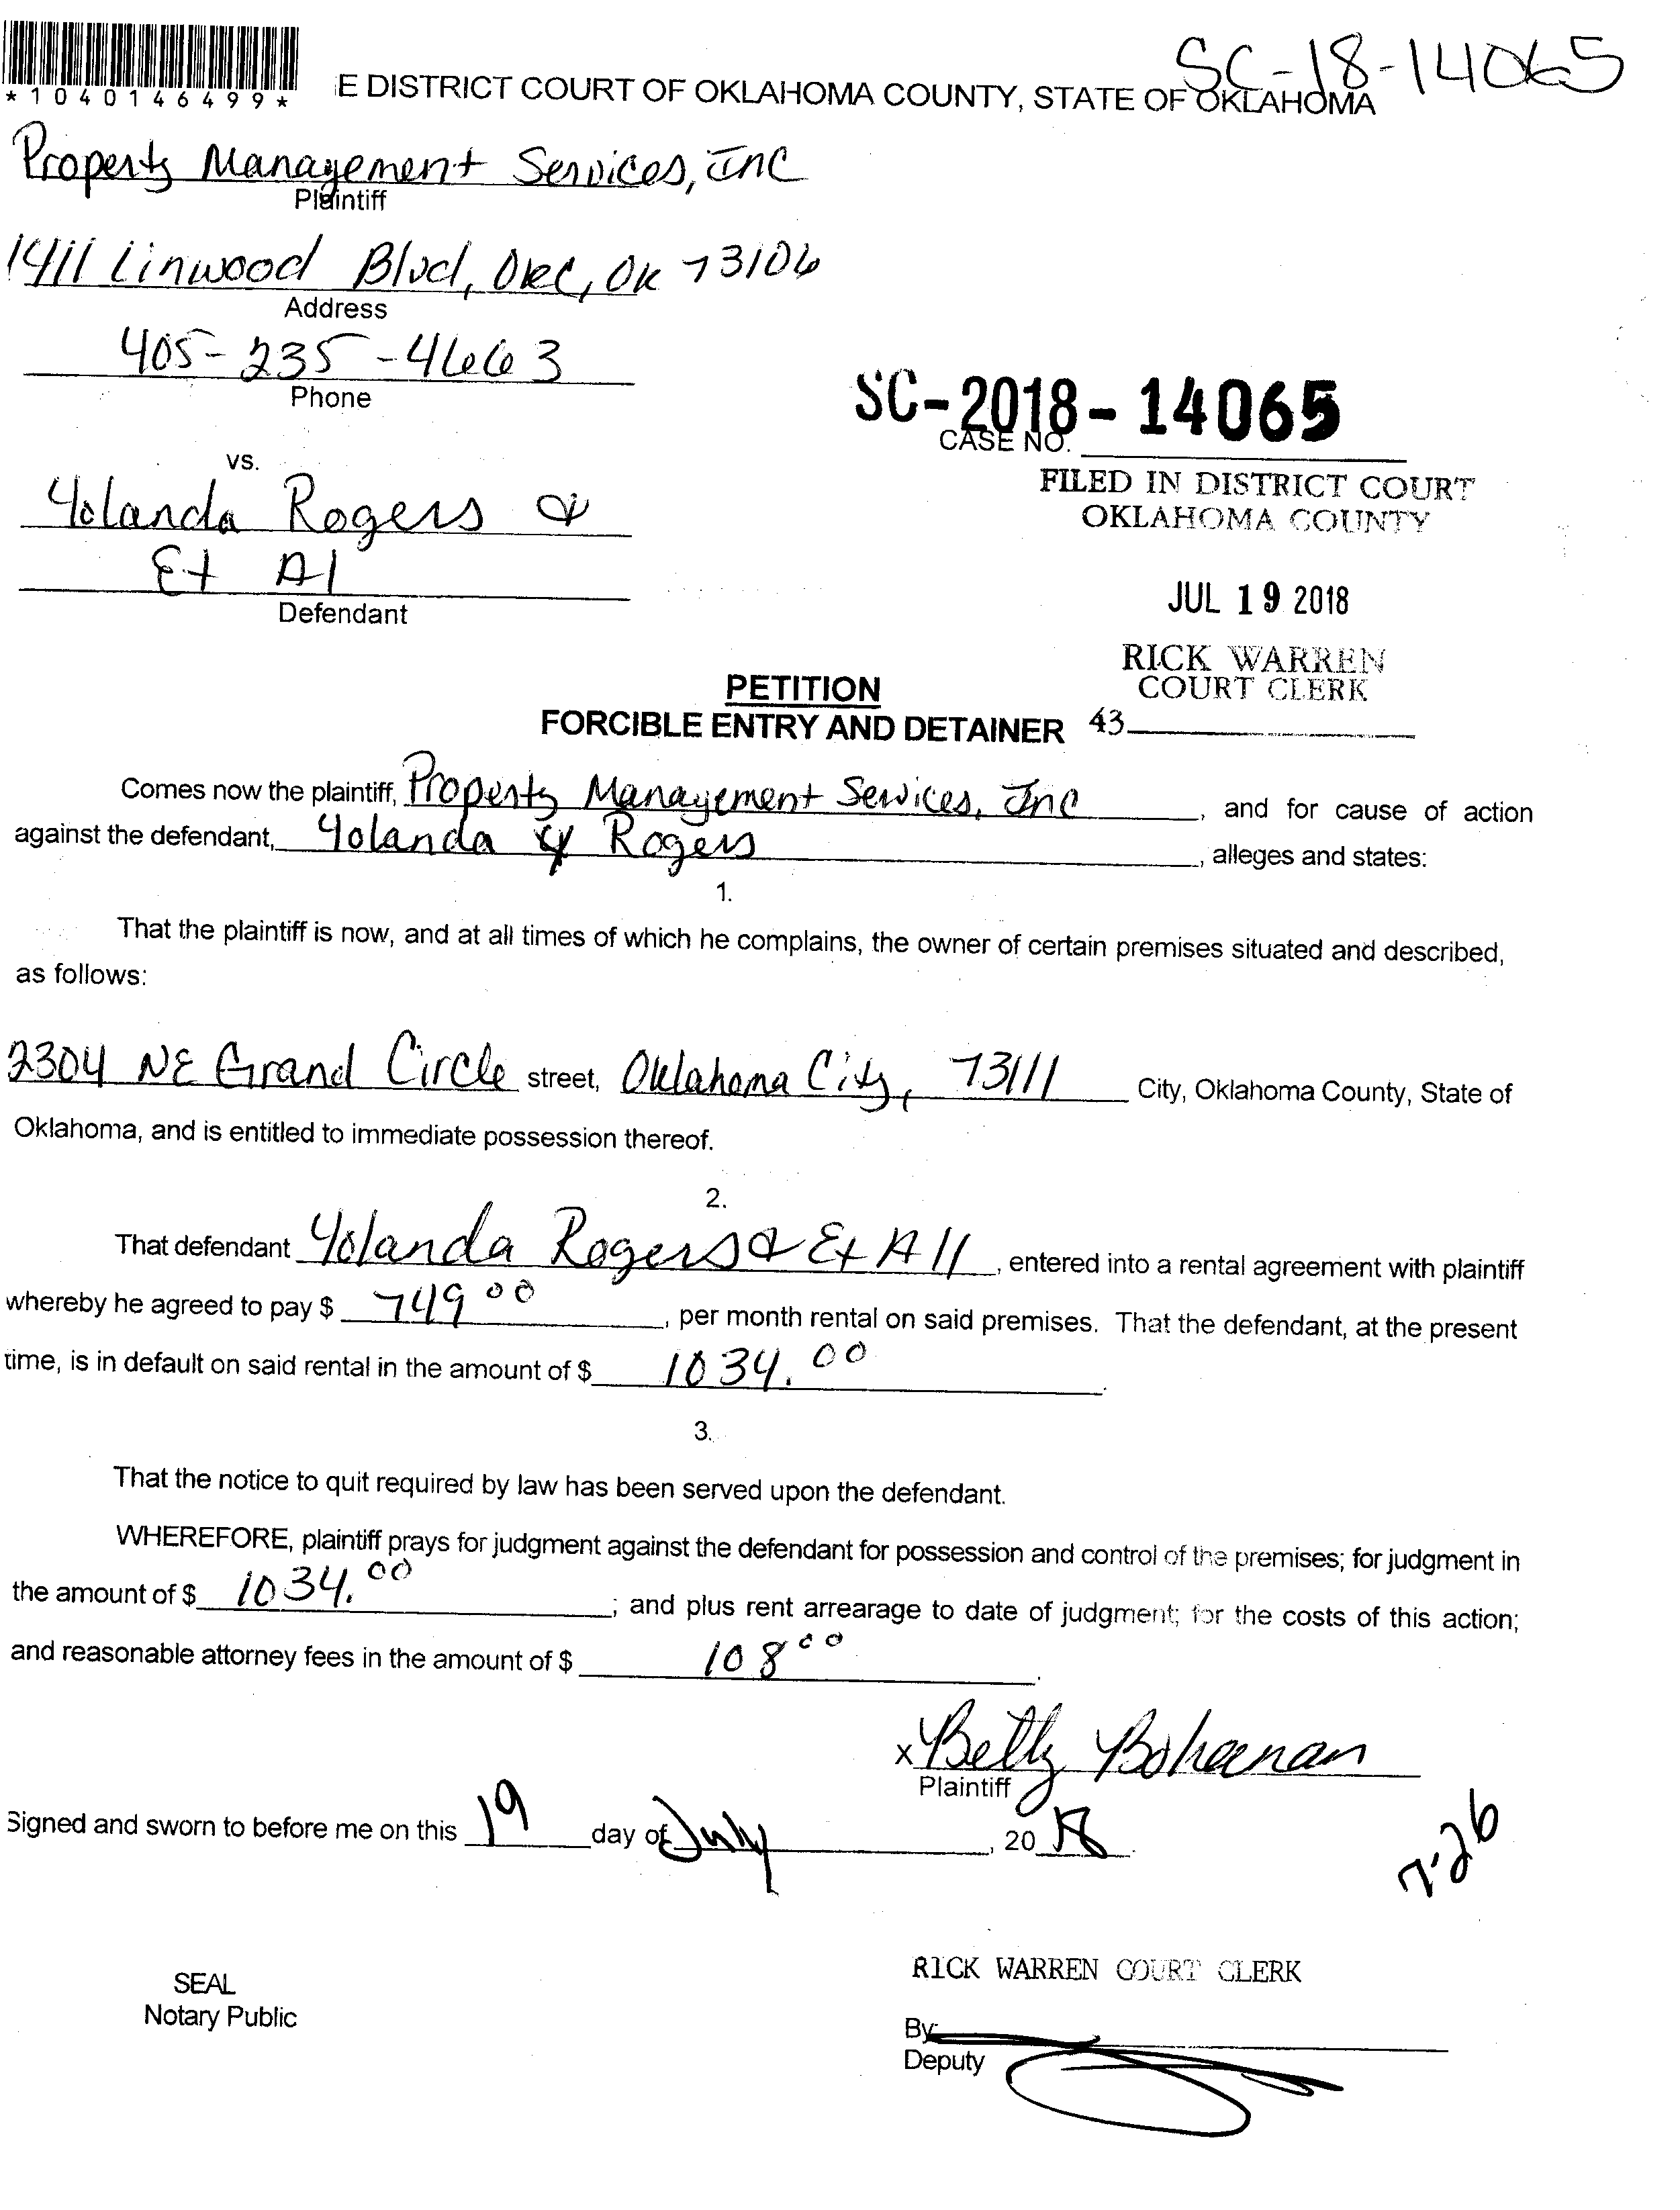 SC-18-14065
*1040146499*
E DISTRICT COURT OF OKLAHOMA COUNTY, STATE OF OKLAHOMA
Property Management Services, Inc
Plaintiff
1411 Linwood Blvd, OKC, OK 73106
Address
405-235-4663
Phone
SC-2018-14065
CASE NO.
vs.
FILED IN DISTRICT COURT
OKLAHOMA COUNTY
Yolanda Rogers &
Et Al
Defendant
JUL 19 2018
RICK WARREN
COURT CLERK
PETITION
FORCIBLE ENTRY AND DETAINER 43
Comes now the plaintiff, Property Management Services, Inc, and for cause of action
against the defendant, Yolanda & Rogers, alleges and states:
1.
That the plaintiff is now, and at all times of which he complains, the owner of certain premises situated and described,
as follows:
2304 NE Grand Circle street, Oklahoma City, 73111 City, Oklahoma County, State of
Oklahoma, and is entitled to immediate possession thereof.
2.
That defendant Yolanda Rogers & Et All, entered into a rental agreement with plaintiff
whereby he agreed to pay $ 749 00, per month rental on said premises. That the defendant, at the present
time, is in default on said rental in the amount of $ 1034.00.
3.
That the notice to quit required by law has been served upon the defendant.
WHEREFORE, plaintiff prays for judgment against the defendant for possession and control of the premises; for judgment in
the amount of $ 1034.00; and plus rent arrearage to date of judgment; for the costs of this action;
and reasonable attorney fees in the amount of $ 108 00.
x Betty Bohannan
Plaintiff
Signed and sworn to before me on this 19 day of July, 20 18.
7-26
RICK WARREN COURT CLERK
SEAL
Notary Public
By:
Deputy